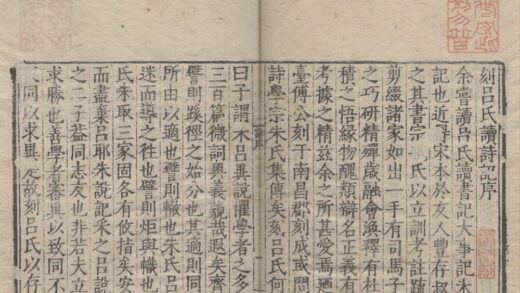 刻呂氏讀詩記序
余嘗讀呂氏讀書記大事記未
記也近得宋本於友人豐存叔
之其書宗氏以立訓考註疏
剪綴諸家如出一手有司馬子
之巧研精殫歲融會渙釋有杜
積之悟緣物醜類辯名正義有
考據之精茲余之所甚愛焉
臺傅公刻于南昌郡刻成或問
詩學宗朱氏集傳矣刻呂氏何
曰子謂朱呂異說懼學者之多
三百篇微詞奧義藐哉遐矣齊
譬則蹊徑之始分也其適則同
所由以適也譬則轍也朱呂同
迷而導之往也譬則炬與幟也
氏朱取三家固各有攸指矣安
而盡棄呂耶朱說記朱之呂說
之二子蓋同志友也非若夫立
求勝也善學者審異以致同不
同以求異是故刻呂氏以存